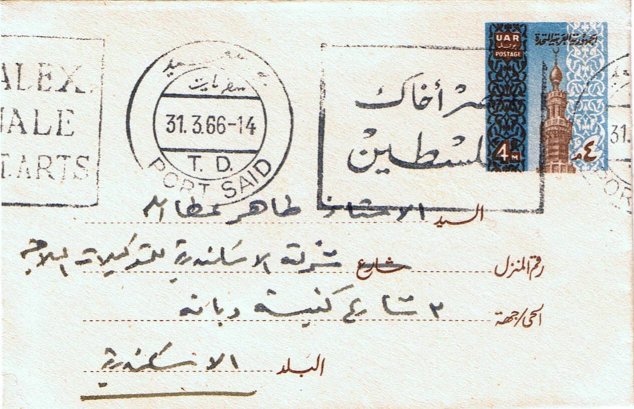 ALEX.
NALE
ARTS
سفريات
31.3.66-14
T. D.
PORT SAID
صر أخاك
فلسطين
UAR
بريد
POSTAGE
الجمهورية العربية المتحدة
4 M
٤ م
السيد الاستاذ طاهر عطا الله
رقم المنزل شارع شركة الاسكندرية للتوكيلات الملاحية
الحى/جهة ٢ شارع كنيسة دبانه
البلد الاسكندرية